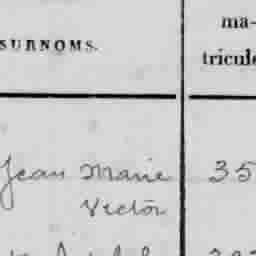 SURNOMS.
ma-
tricule
Jean Marie 35
Victor